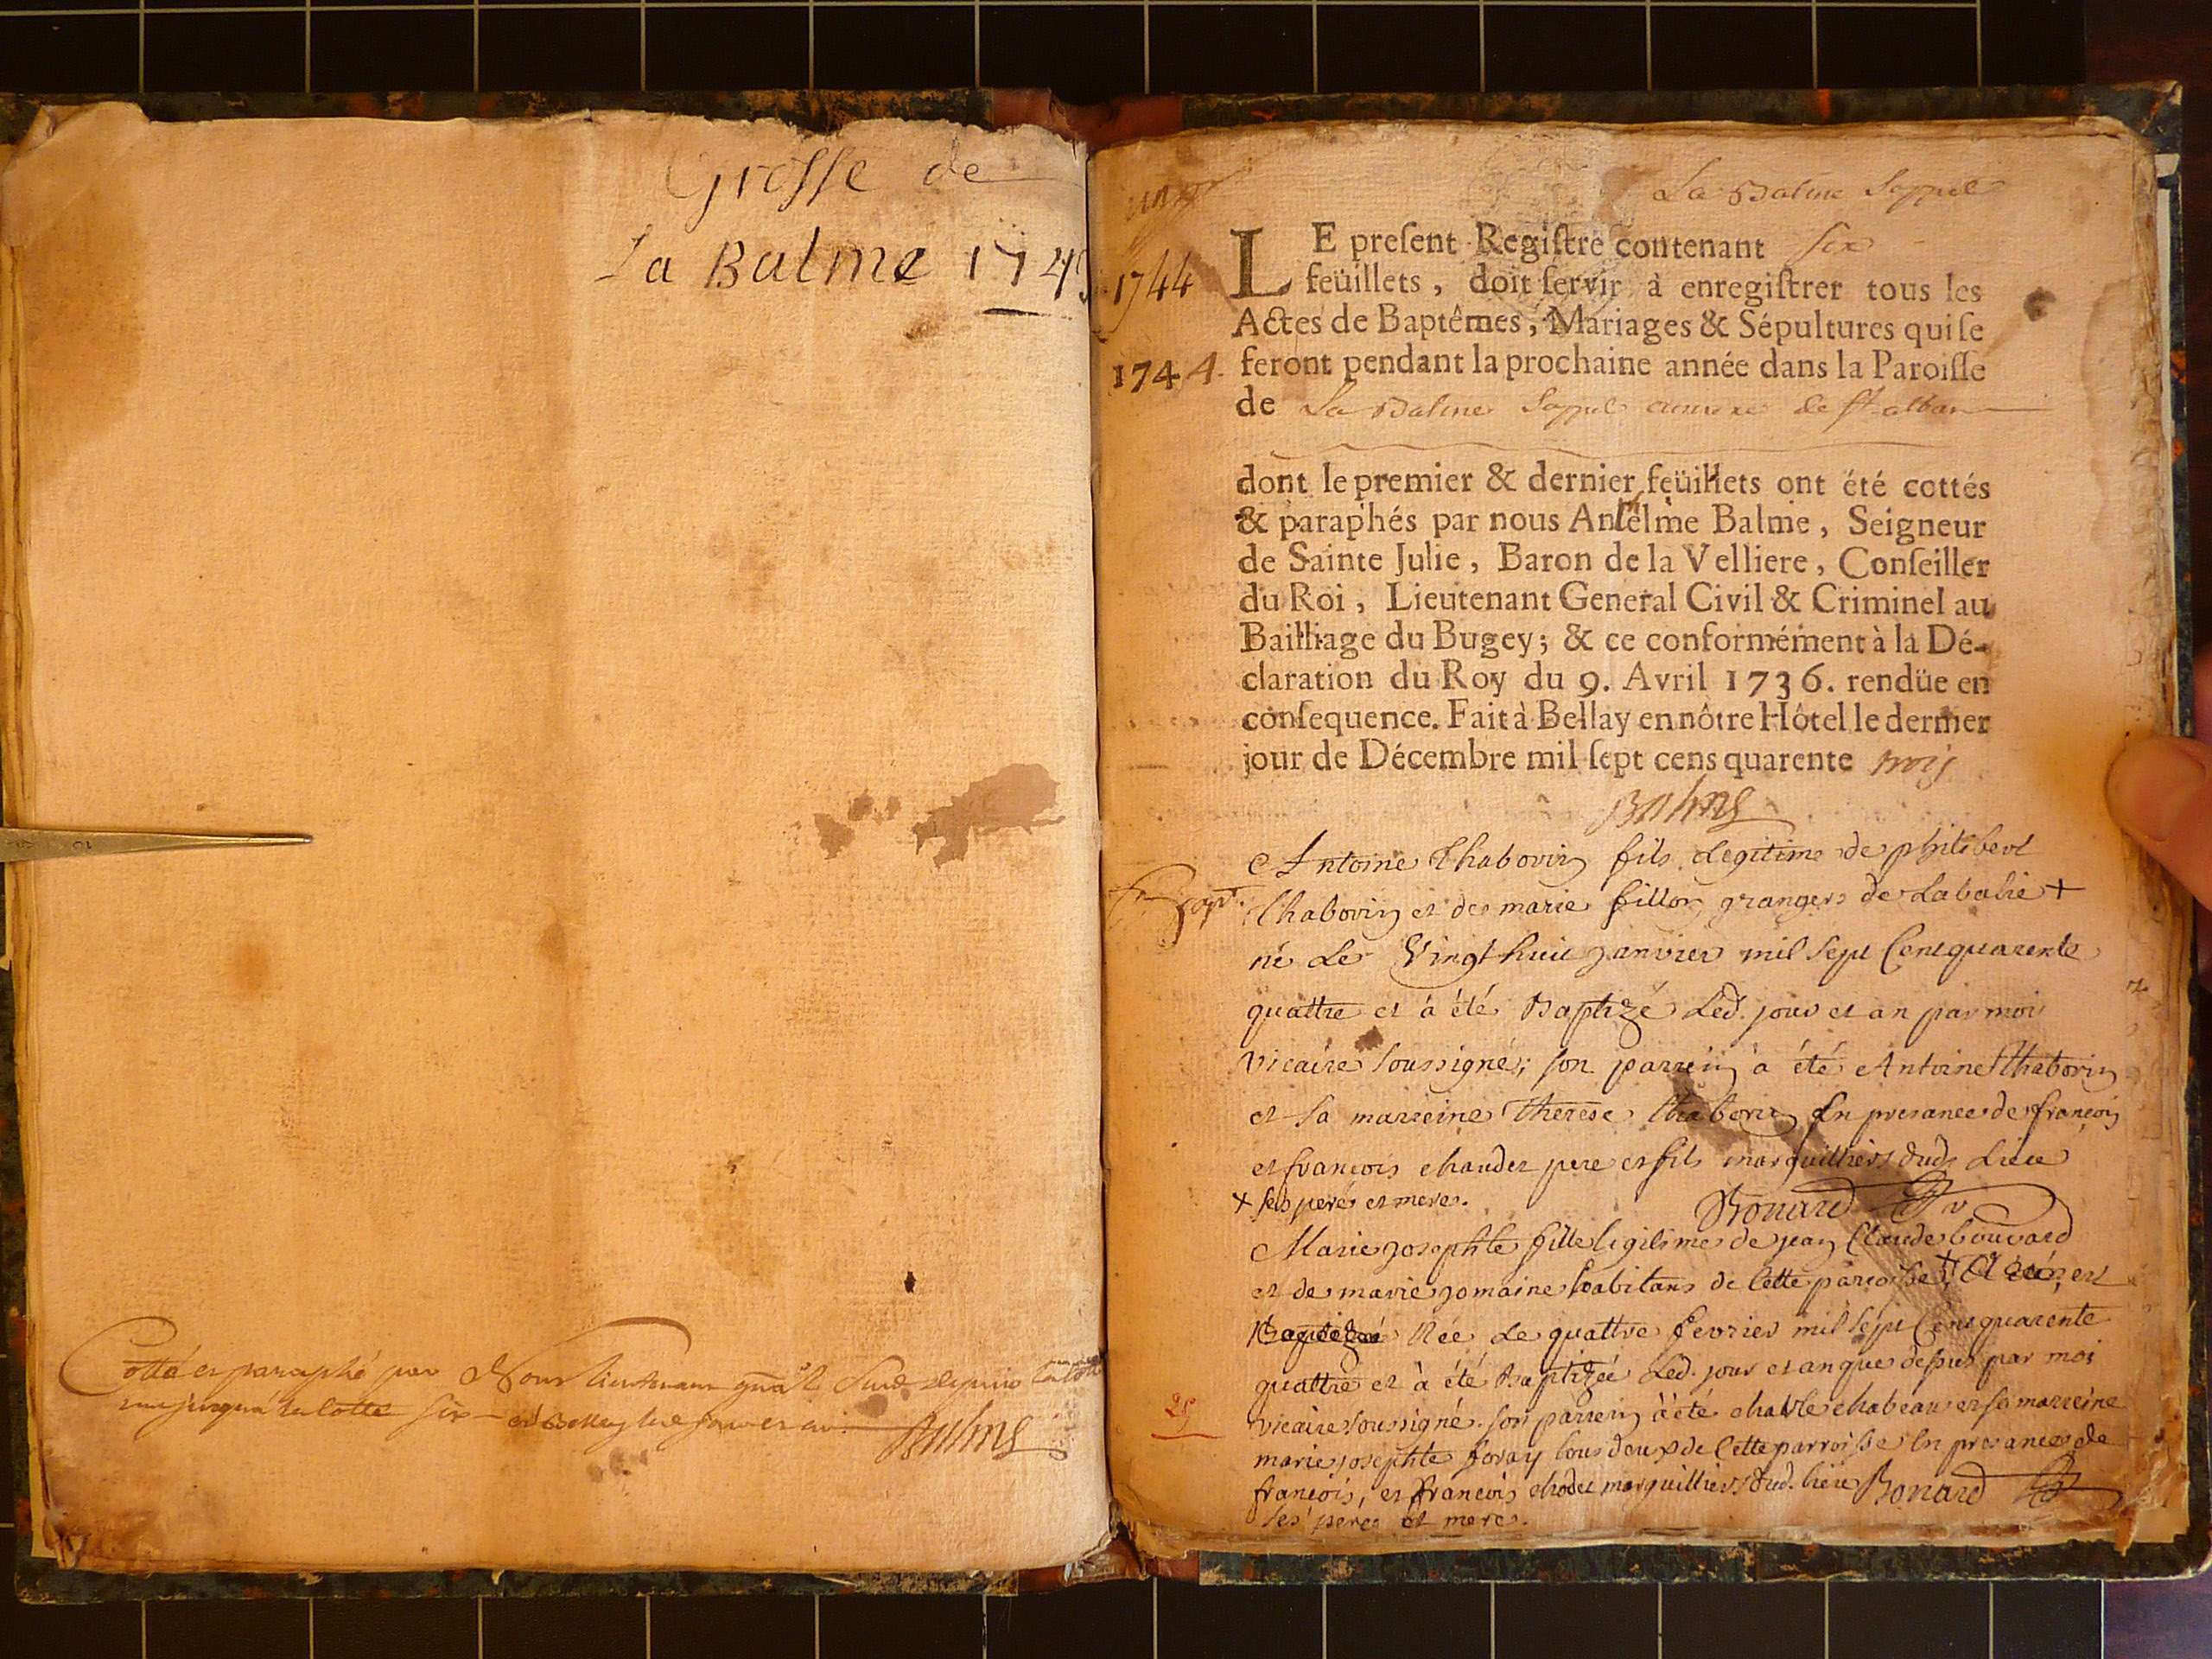 Grosse de
La Balme 174
Cotté et paraphé par Nous lieutenant gnãl susd. depuis la cotte
une jusqu'à la cotte six et Bellay led. jour et an. Balme
La Balme Sappel
1744
1744.
LE preſent Regiſtre contenant six
feüillets, doit ſervir à enregiſtrer tous les
Actes de Baptêmes, Mariages & Sépultures qui ſe
feront pendant la prochaine année dans la Paroiſſe
de La Balme Sappel annexe de St alban
dont le premier & dernier feüillets ont été cottés
& paraphés par nous Anſelme Balme, Seigneur
de Sainte Julie, Baron de la Velliere, Conſeiller
du Roi, Lieutenant General Civil & Criminel au
Bailliage du Bugey; & ce conformément à la Dé-
claration du Roy du 9. Avril 1736. rendüe en
conſequence. Fait à Bellay en nôtre Hôtel le dernier
jour de Décembre mil ſept cens quarente trois
Balme
Antoine Thabovin fils Legitime de philibert
Thabovin et de marie fillon grangers de Labalie +
né Le Vingt huit janvier mil Sept Cent quarente
quattre et à été Baptizé Led. jour et an par moi
Vicaire Soussigné; son parrein à été Antoine Thabovin
et Sa marreine Therese Thabovin En presance de françois
et françois chaudet pere et fils marguilliers dud. Lieu
+ ses pere et mere. Bonard v
Marie josephte fille ligitime de jean Claude bouvard
et de marie jomaine habitans de Cette paroisse +
Née Le quattre fevrier mil Sept Cent quarente
quattre et à été Baptizée Led. jour et an que dessus par moi
vicaire Soussigné. son parrein à été charle chabeau et sa marreine
marie josephte foray tous deux de Cette parroisse En presance de
françois, et françois chodet marguilliers dud. lieu Bonard
ses pere et mere.
25